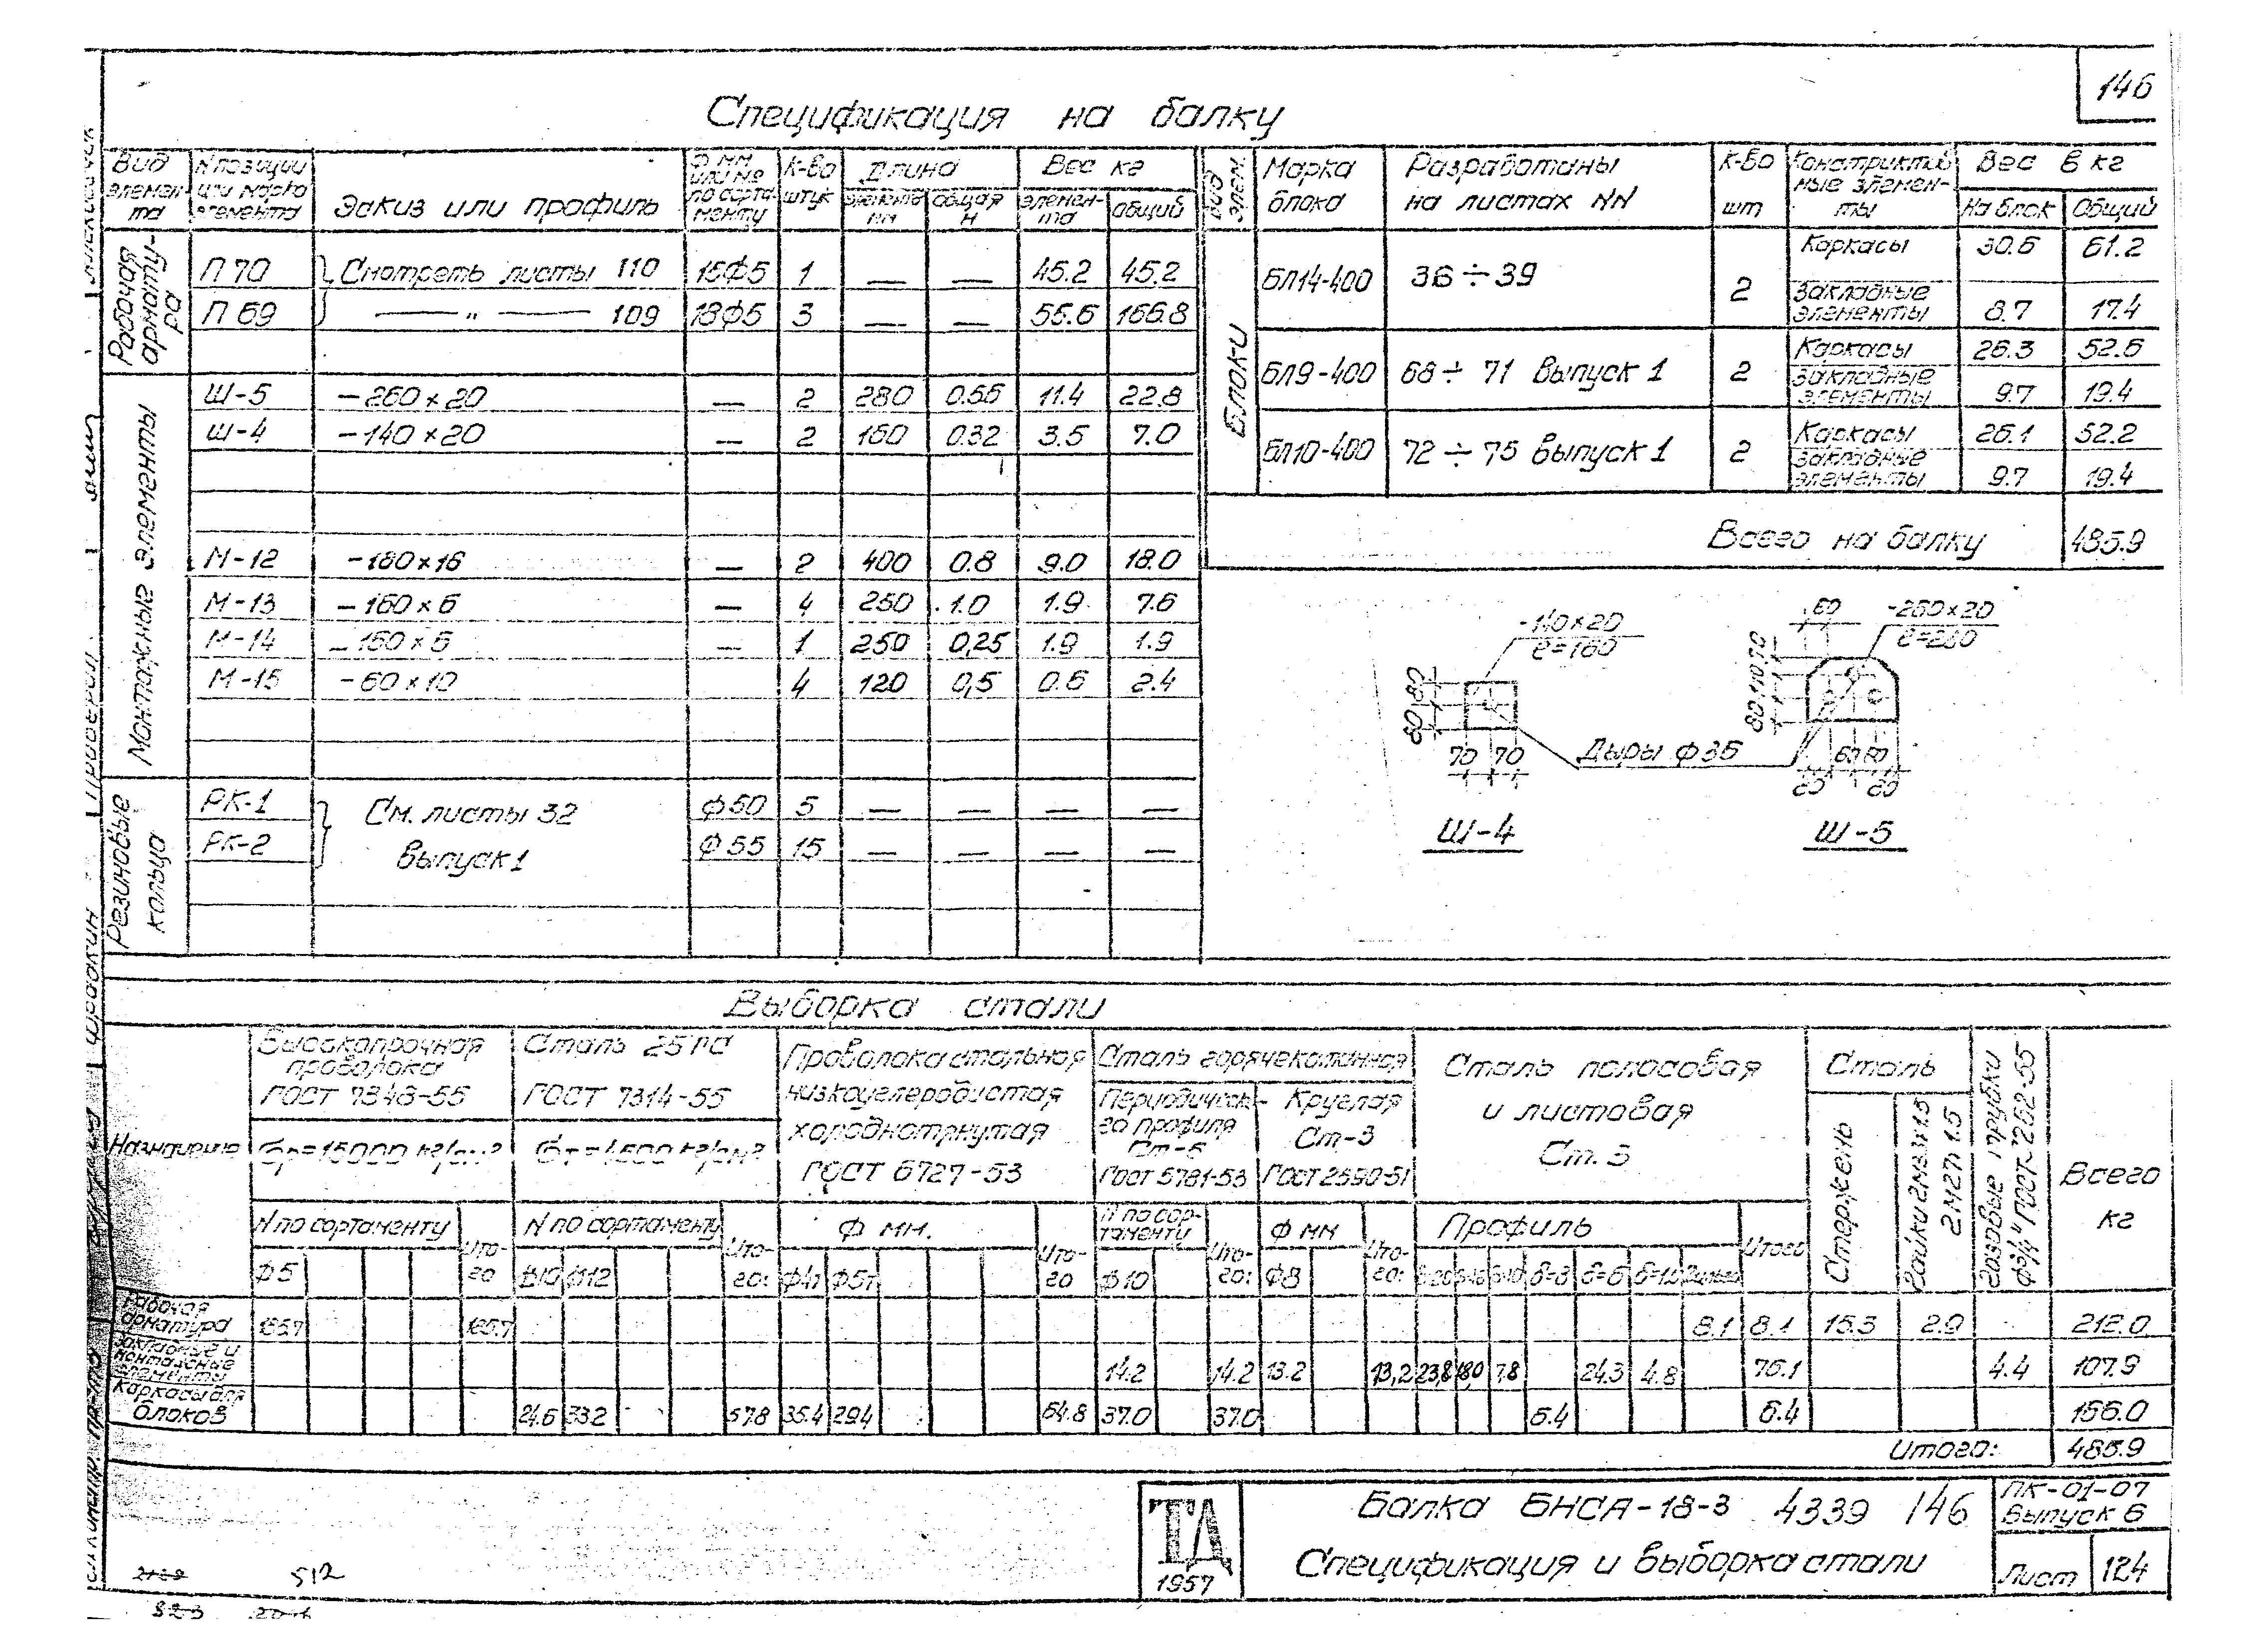 146
Спецификация на балку
Вид элемен- та | N позиции или марка элемента | Эскиз или профиль | Ф мм или № по сорта- менту | К-во штук | Длина | элемента мм | общая м | Вес кг | элемен- та | общий
Рабочая арматура
П 70 | Смотреть листы 110 | 15Ф5 | 1 | — | — | 45.2 | 45.2
П 69 | — " — 109 | 18Ф5 | 3 | — | — | 55.6 | 166.8
Монтажные элементы
Ш-5 | -260×20 | — | 2 | 280 | 0.56 | 11.4 | 22.8
Ш-4 | -140×20 | — | 2 | 160 | 0.32 | 3.5 | 7.0
М-12 | -180×16 | — | 2 | 400 | 0.8 | 9.0 | 18.0
М-13 | -160×6 | — | 4 | 250 | 1.0 | 1.9 | 7.6
М-14 | -160×6 | — | 1 | 250 | 0,25 | 1.9 | 1.9
М-15 | -60×10 | 4 | 120 | 0,5 | 0.6 | 2.4
Резиновые кольца
РК-1 | См. листы 32 | Ф50 | 5 | — | — | — | —
РК-2 | Выпуск 1 | Ф55 | 15 | — | — | — | —
Вид элем. | Марка блока | Разработаны на листах NN | К-во шт | Конструктив ные элемен- ты | Вес в кг | На блок | Общий
Блоки
БЛ14-400 | 36÷39 | 2 | Каркасы | 30.6 | 61.2
Закладные элементы | 8.7 | 17.4
БЛ9-400 | 68÷71 Выпуск 1 | 2 | Каркасы | 26.3 | 52.6
Закладные элементы | 9.7 | 19.4
БЛ10-400 | 72÷75 Выпуск 1 | 2 | Каркасы | 26.1 | 52.2
Закладные элементы | 9.7 | 19.4
Всего на балку | 485.9
-140×20
ℓ=160
80 80
70 70
Дыры Ф36
Ш-4
60
-260×20
ℓ=280
Ш-5
Выборка стали
Назначение
Высокопрочная проволока ГОСТ 7348-55
Сталь 25ГС ГОСТ 7314-55
Проволока стальная низкоуглеродистая холоднотянутая ГОСТ 6727-53
Сталь горячекатанная
Периодическо- го профиля Ст-5 ГОСТ 5781-53
Круглая Ст-3 ГОСТ 2590-51
Сталь полосовая и листовая Ст. 3
Сталь
Стержень
Газовые трубки Ф3/4" ГОСТ-3262-55
Всего кг
N по сортаменту | Ито- го | N по сортаменту | Ито- го: | Ф мм. | Ито- го | N по сор- таменту | Ито- го: | Ф мм | Ито- го: | Профиль | Итого
Ф5 | Ф10 | Ф12 | Ф4т | Ф5т | Ф10 | Ф8 | δ=20 | δ=16 | δ=10 | δ=8 | δ=6
Рабочая арматура | 185.7 | 185.7 | 8.1 | 8.1 | 15.3 | 2.9 | 212.0
Закладные и монтажные элементы | 14.2 | 14.2 | 13.2 | 13,2 | 23,8 | 18,0 | 7.8 | 24.3 | 4.8 | 76.1 | 4.4 | 107.9
Каркасы для блоков | 24.6 | 33.2 | 57.8 | 35.4 | 29.4 | 64.8 | 37.0 | 37.0 | 6.4 | 6.4 | 166.0
Итого: | 485.9
ТД
1957
Балка БНСА-18-3 4339 146
Спецификация и выборка стали
ПК-01-07
Выпуск 6
Лист 124
512